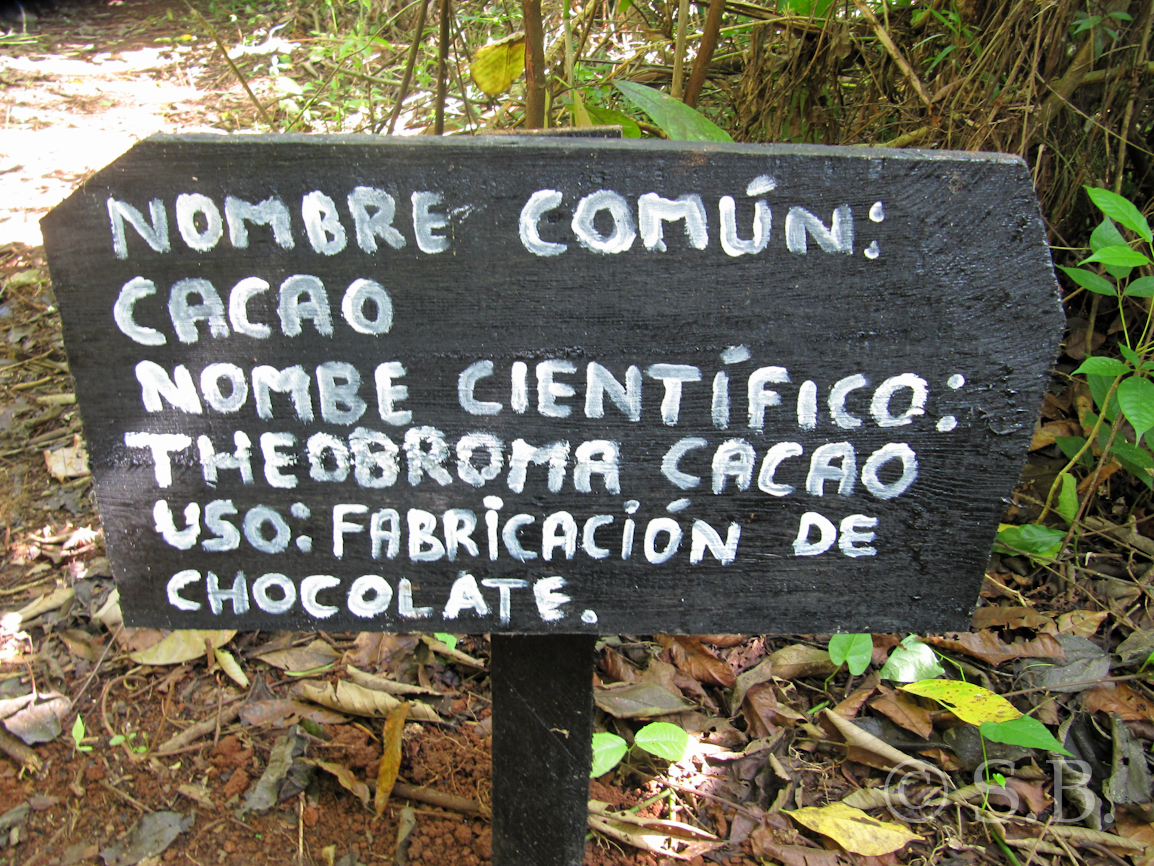 NOMBRE COMÚN:
CACAO
NOMBRE CIENTÍFICO:
THEOBROMA CACAO
USO: FABRICACIÓN DE
CHOCOLATE.
© S.B.